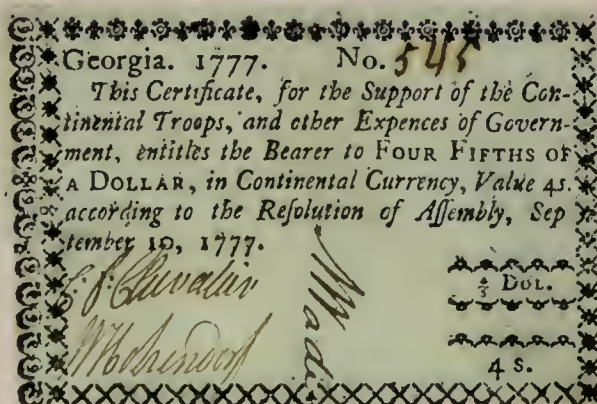 Georgia. 1777. No. 545
This Certificate, for the Support of the Con-
tinental Troops, and other Expences of Govern-
ment, entitles the Bearer to FOUR FIFTHS OF
A DOLLAR, in Continental Currency, Value 4s.
according to the Resolution of Assembly, Sep
tember 10, 1777.
⅘ DOL.
4 s.